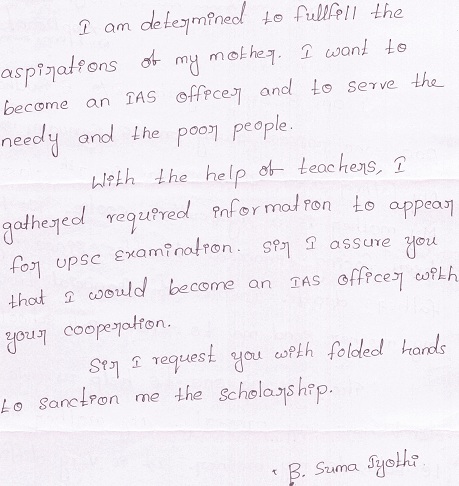 I am determined to fullfell the
aspirations of my mother. I want to
become an IAS officer and to serve the
needy and the poor people.
With the help of teachers, I
gathered required information to appear
for UPSC Examination. Sir I assure you
that I would become an IAS officer with
your cooperation.
Sir I request you with folded hands
to sanction me the scholarship.
B. Suma Jyothi.